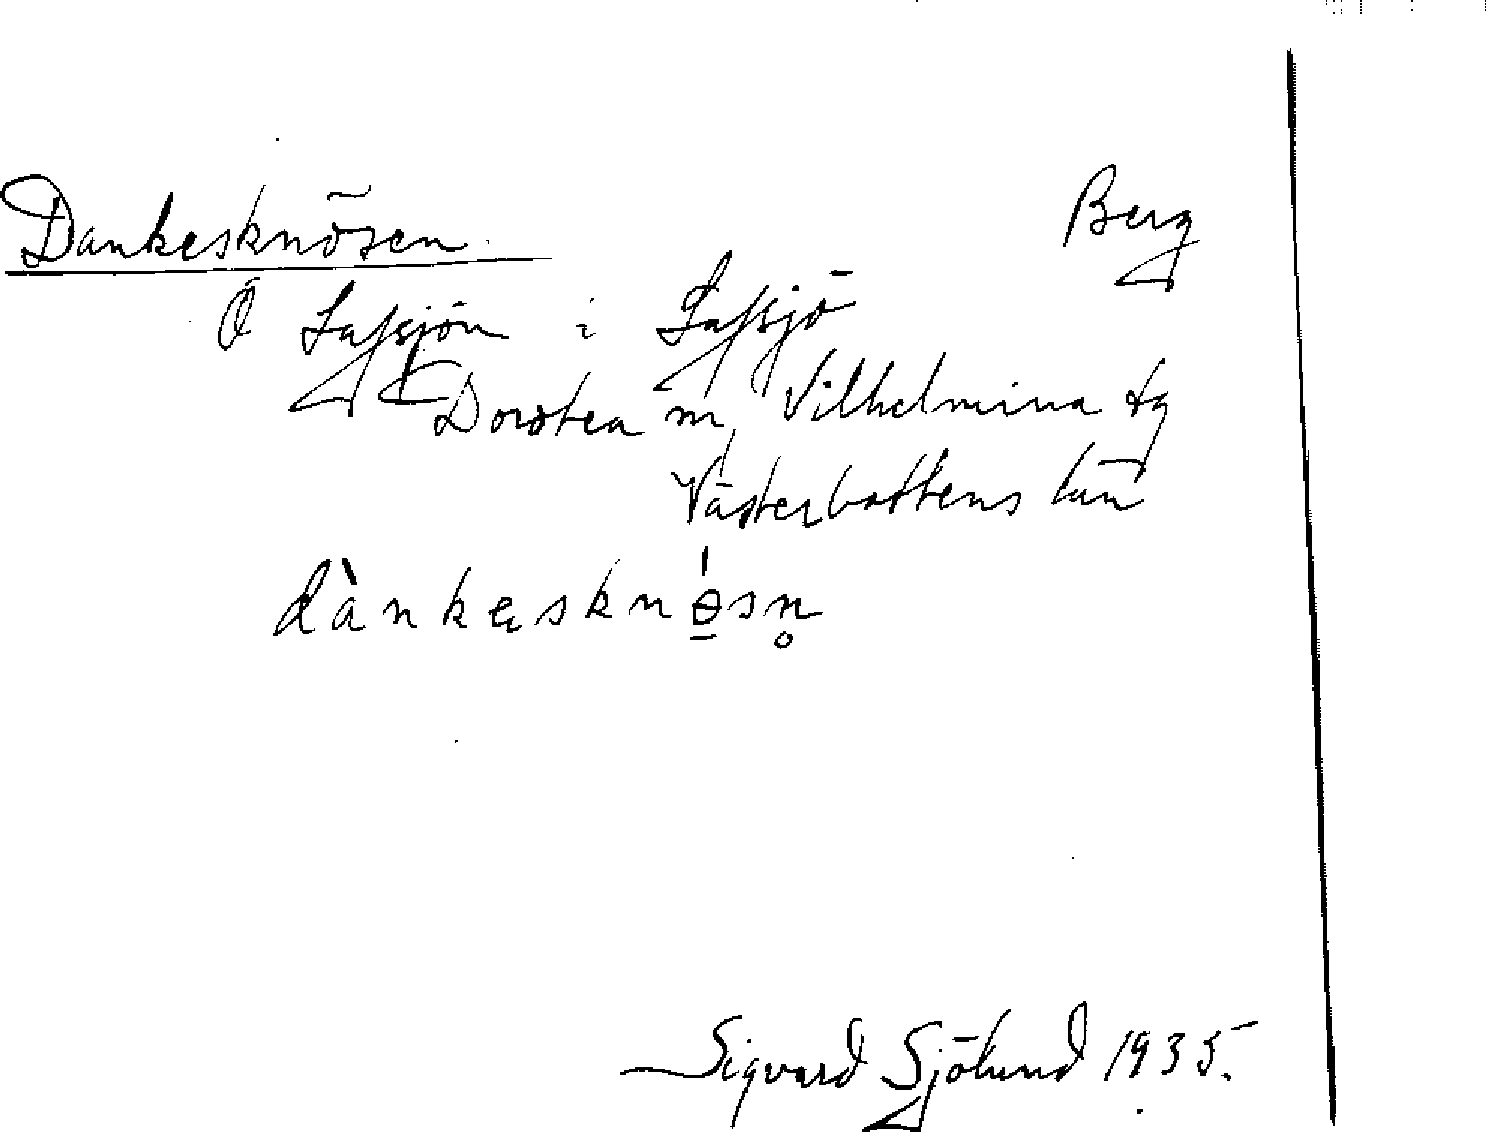 Dankesknösen. Berg
Ö Lafsjön i Lafsjö
Dorotea sn, Vilhelmina tg
Västerbottens län
dànkesknɵ̱́sn̥
Sigvard Sjölund 1935.